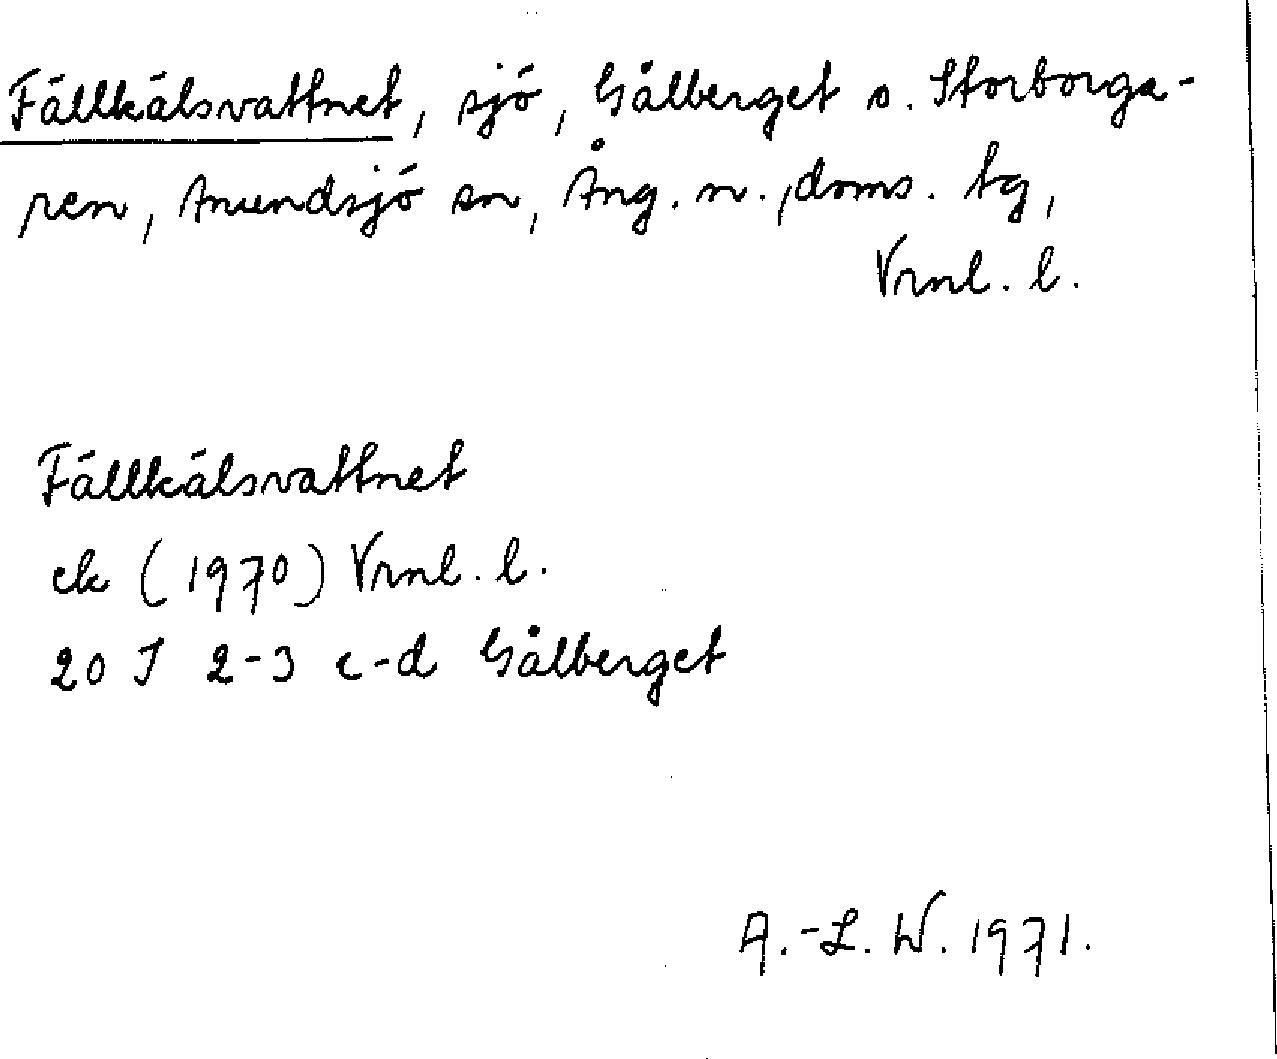 Fällkälsvattnet, sjö, Gålberget o. Storborga-
ren, Anundsjö sn, Ång. n., doms. tg,
Vrnl. l.
Fällkälsvattnet
ek (1970) Vrnl. l.
20 J 2-3 c-d Gålberget
A.-L. W. 1971.